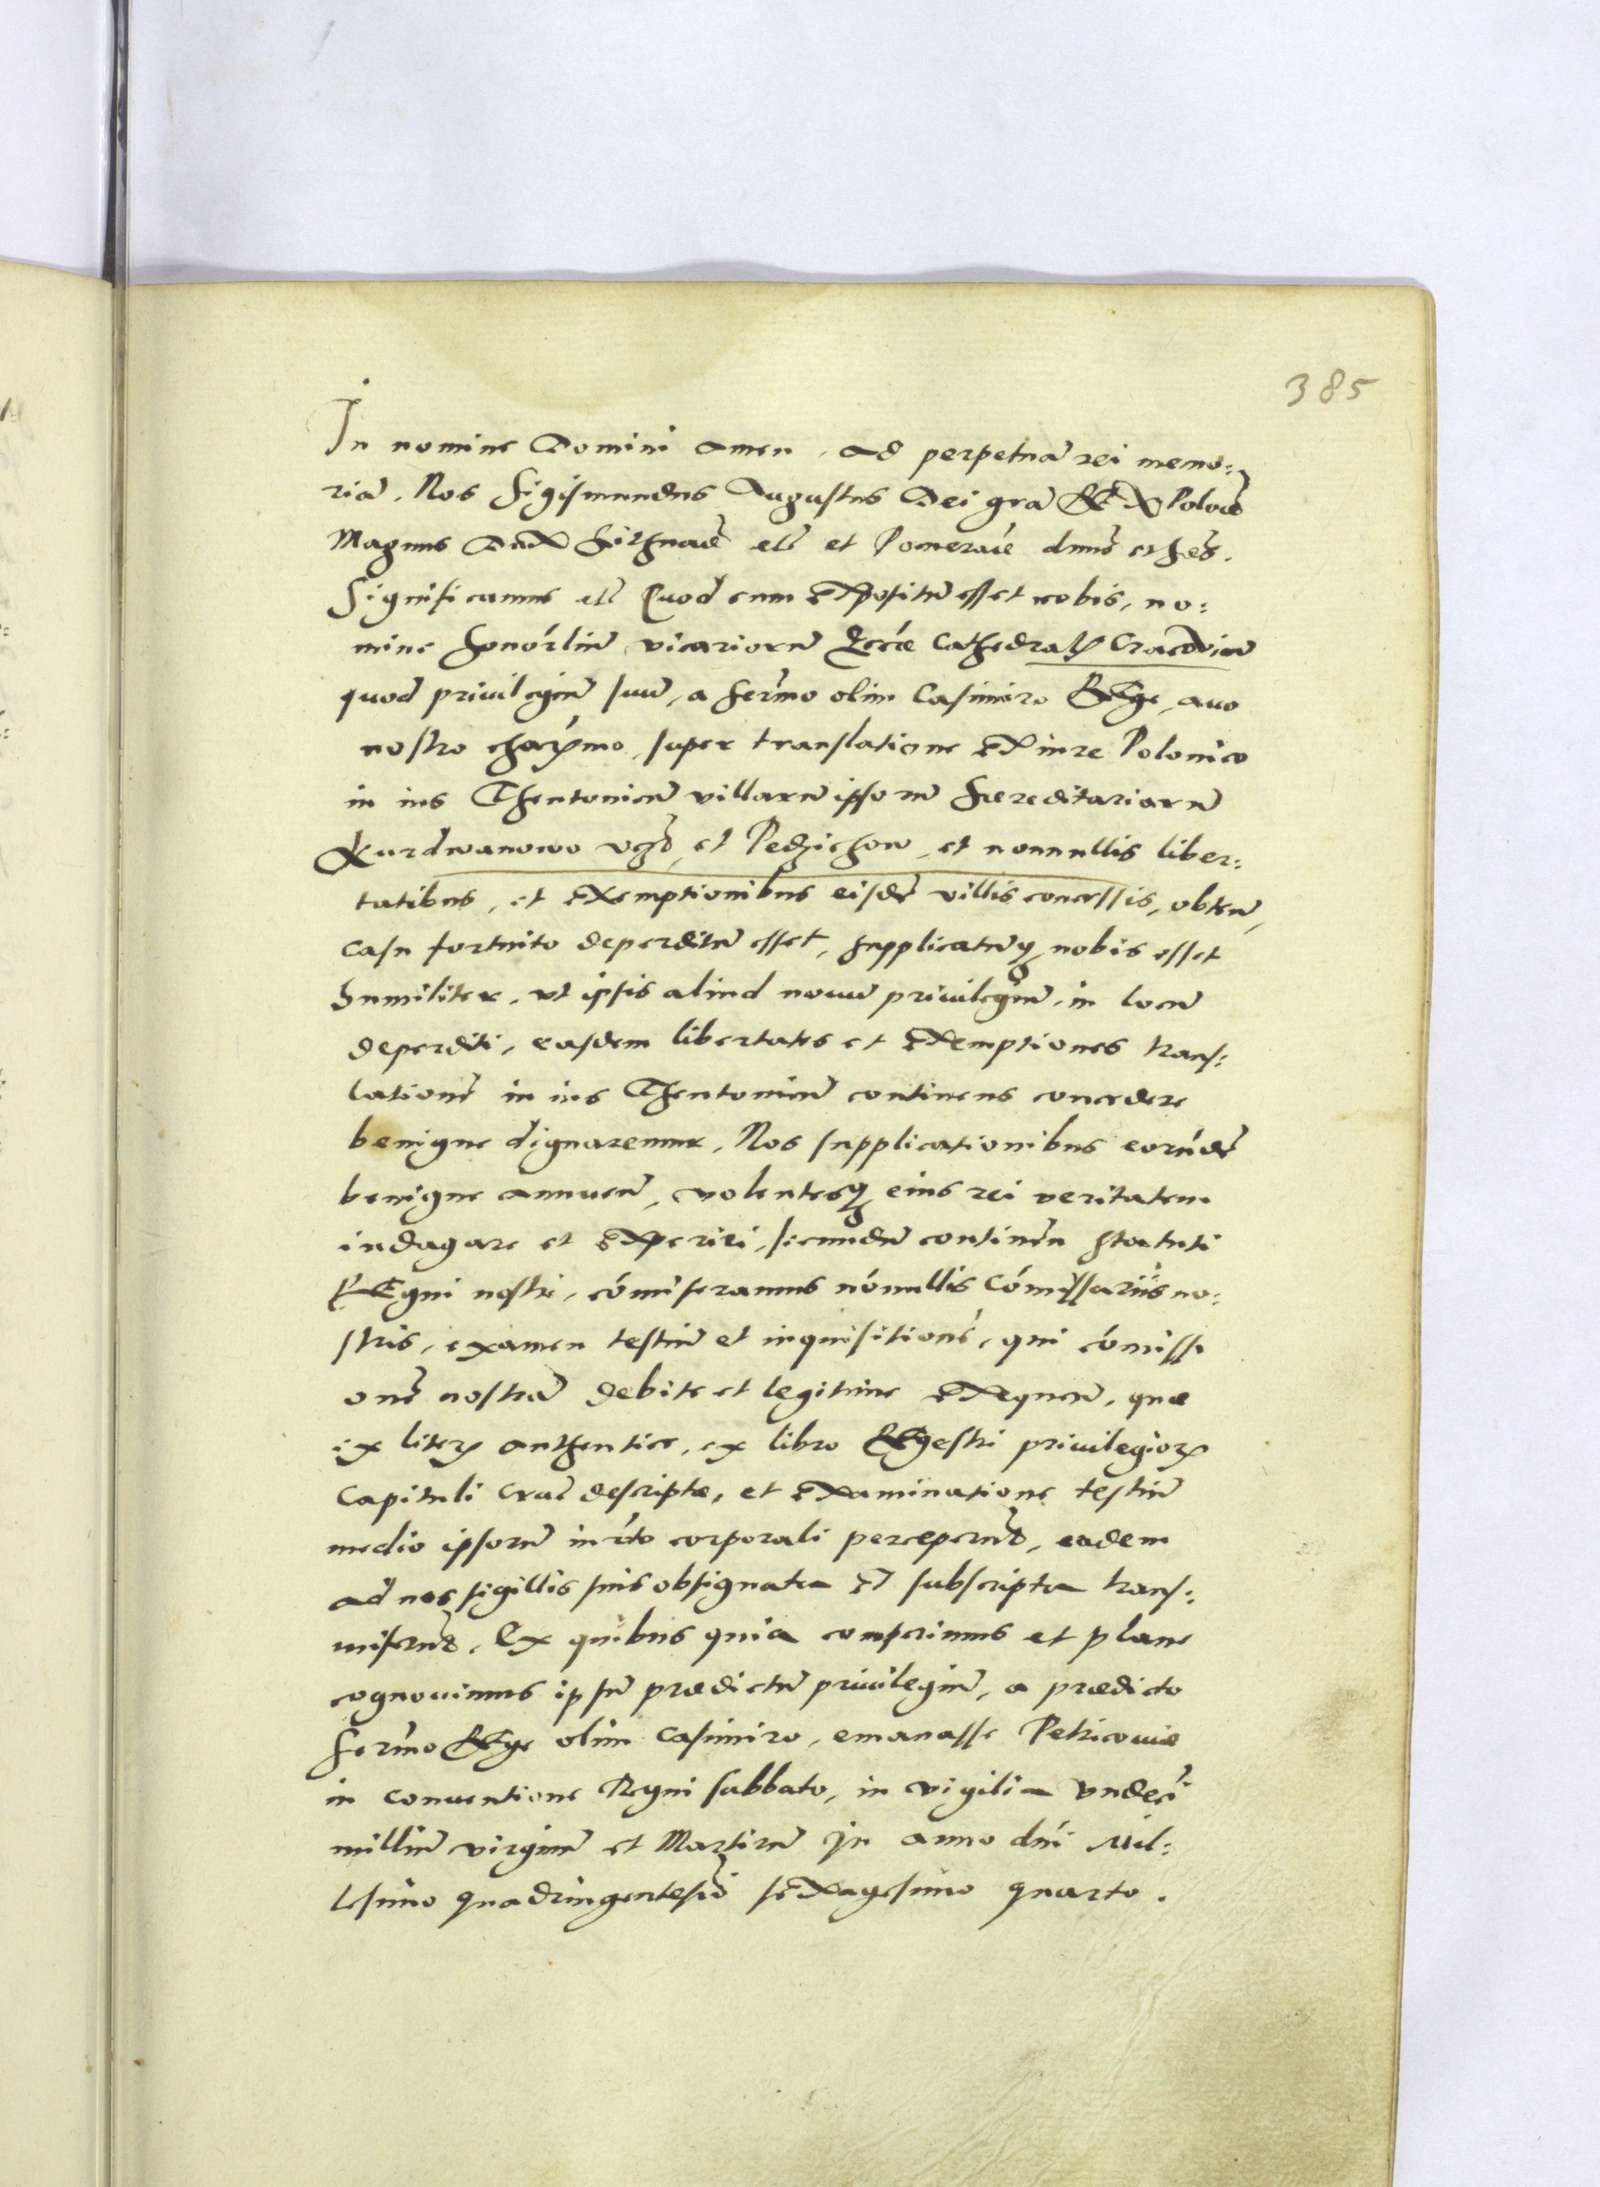 385
In nomine Domini amen, ad perpetuã rei memo:
riã. Nos Sigismundus Augustus Dei gra REX Polonie
Magnus Dux Lithuanie etc et Pomeranie dnus et heres.
Significamus etc Quod cum expositũ esset nobis, no:
mine honorliũ vicariorũ Eccie Cathedralis Cracovien
quod privilegiũ suũ, a sermo olim Casimiro Rege, avo
nostro charismo, super translatione ex iure Polonico
in ius Theutonicũ villarũ ipsorũ haereditariarũ
Kurdwanowo et Pedzichow, et nonnullis liber:
tatibus, et exemptionibus eisdẽ villis concessis, obtenũ,
casu fortuito deperditũ esset, supplicatũq nobis esset
humiliter, ut ipsis aliud novũ privilegiũ, in locũ
deperditi, easdem libertates et exemptiones trans:
lationẽ in ius Theutonicũ continens concedere
benigne dignaremur. Nos supplicationibus eorũdẽ
benigne annuen, volentesq eius rei veritatem
indagare et experiri, secundũ continen statuti
Regni nostri, cõmiseramus nõnullis Cõmissariis no:
stris, examen testiũ et inquisitionẽ, qui cõmissi
onẽ nostrã debite et legitime exequen, quae
ex literis authenticis, ex libro Regestri privilegiorum
Capituli Crac descriptae, et examinatione testiũ
medio ipsorũ iurto corporali perceperũt, eadem
ad nos sigillis suis obsignata et subscripta trans:
miserũt. Ex quibus quia comperimus et plane
cognovimus ipsũ praedictũ privilegiũ, a praedicto
sermo Rege olim Casimiro, emanasse Petricoviae
in conventione Regni sabbato, in vigilia undeci
milliũ virginũ et Martirũ In anno dni Mil:
lesimo quadringentesimo sexagesimo quarto.